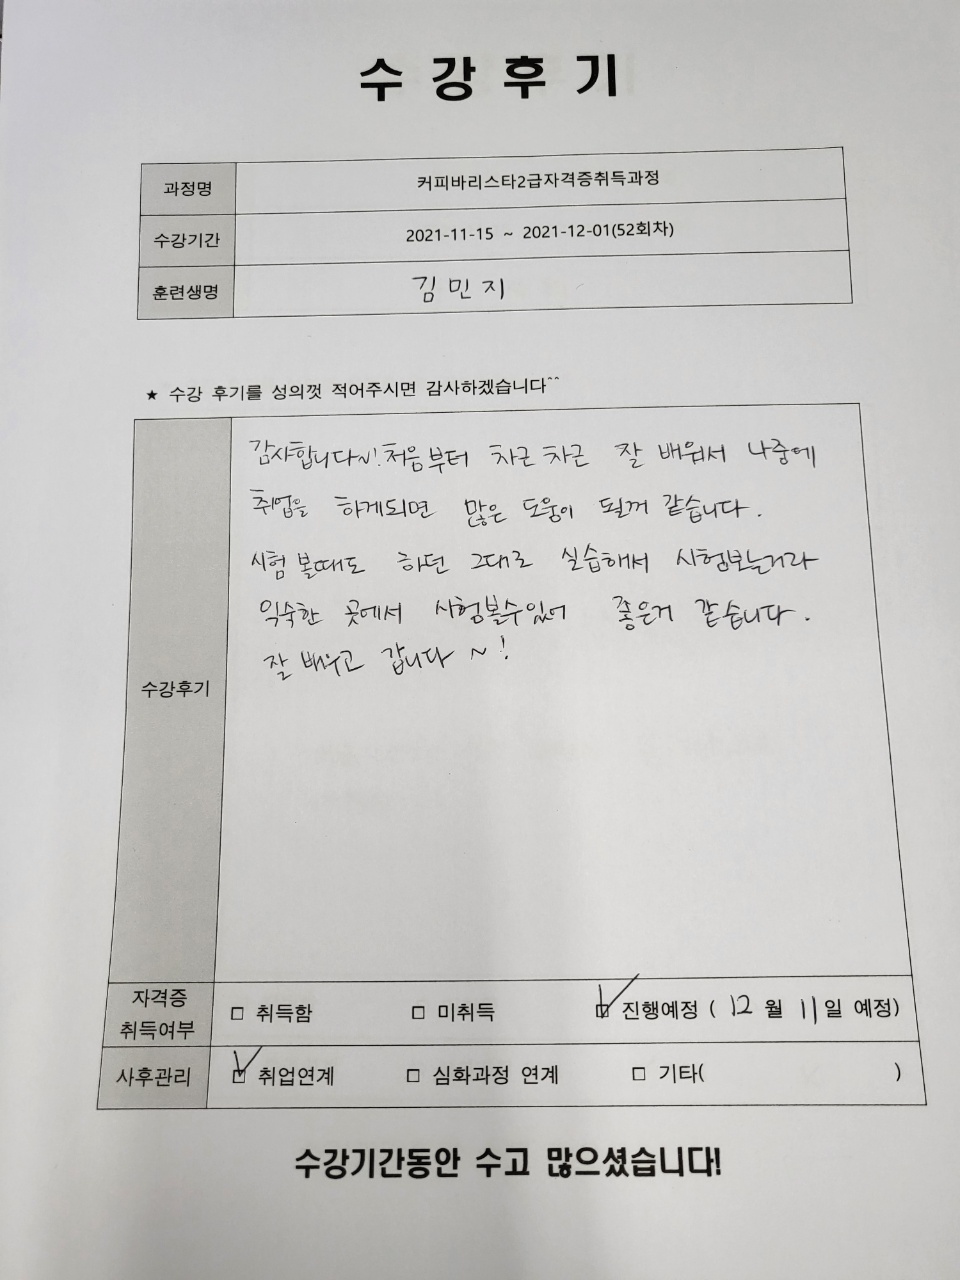 수강후기
과정명 커피바리스타2급자격증취득과정
수강기간 2021-11-15 ~ 2021-12-01(52회차)
훈련생명 김민지
★ 수강 후기를 성의껏 적어주시면 감사하겠습니다^^
감사합니다~! 처음부터 차근차근 잘 배워서 나중에
취업을 하게되면 많은 도움이 될꺼 같습니다.
시험 볼때도 하던 그대로 실습해서 시험보는거라
수강후기
익숙한 곳에서 시험볼수있어 좋은거 같습니다.
잘 배우고 갑니다 ~!
자격증
취득여부
□ 취득함 □ 미취득 ☑ 진행예정 ( 12 월 11 일 예정)
사후관리 ☑ 취업연계 □ 심화과정 연계 □ 기타( )
수강기간동안 수고 많으셨습니다!